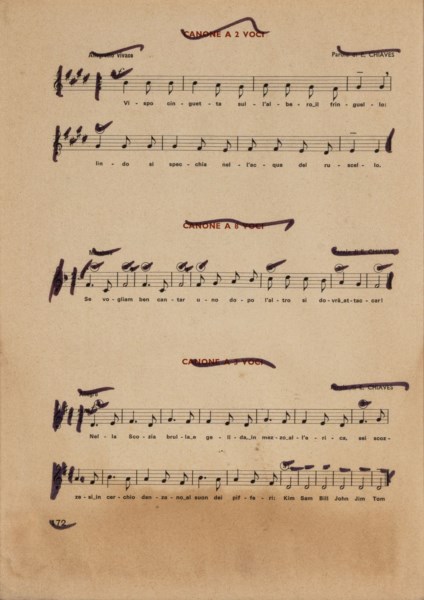 CANONE A 2 VOCI
Allegretto vivace
Parole di E. CHIAVES
Vi - spo cin - guet - ta sul - l'al - be - ro‿il frin - guel - lo:
lin - do si spec - chia nel - l'ac - que del ru - scel - lo.
CANONE A 8 VOCI
Se vo - gliam ben can - tar u - no do - po l'al - tro si do - vrà‿at - tac - car!
CANONE A 3 VOCI
E. CHIAVES
Nel - la Sco - zia brul - la‿e ge - li - da‿in mez - zo‿al - l'a - ri - ca, sei scoz -
ze - si‿in cer - chio dan - za - no‿al suon del pif - fe - ri: Kim Sam Bill John Jim Tom
172